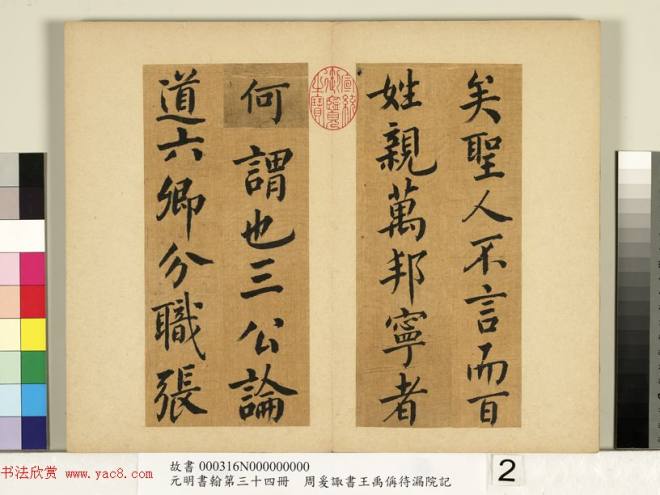 矣聖人不言而百
姓親萬邦寧者
何謂也三公論
道六卿分職張
宣統御覽之寶
故書 000316N000000000
元明書翰第三十四冊 周爰諏書王禹偁待漏院記
2
书法欣赏 www.yac8.com